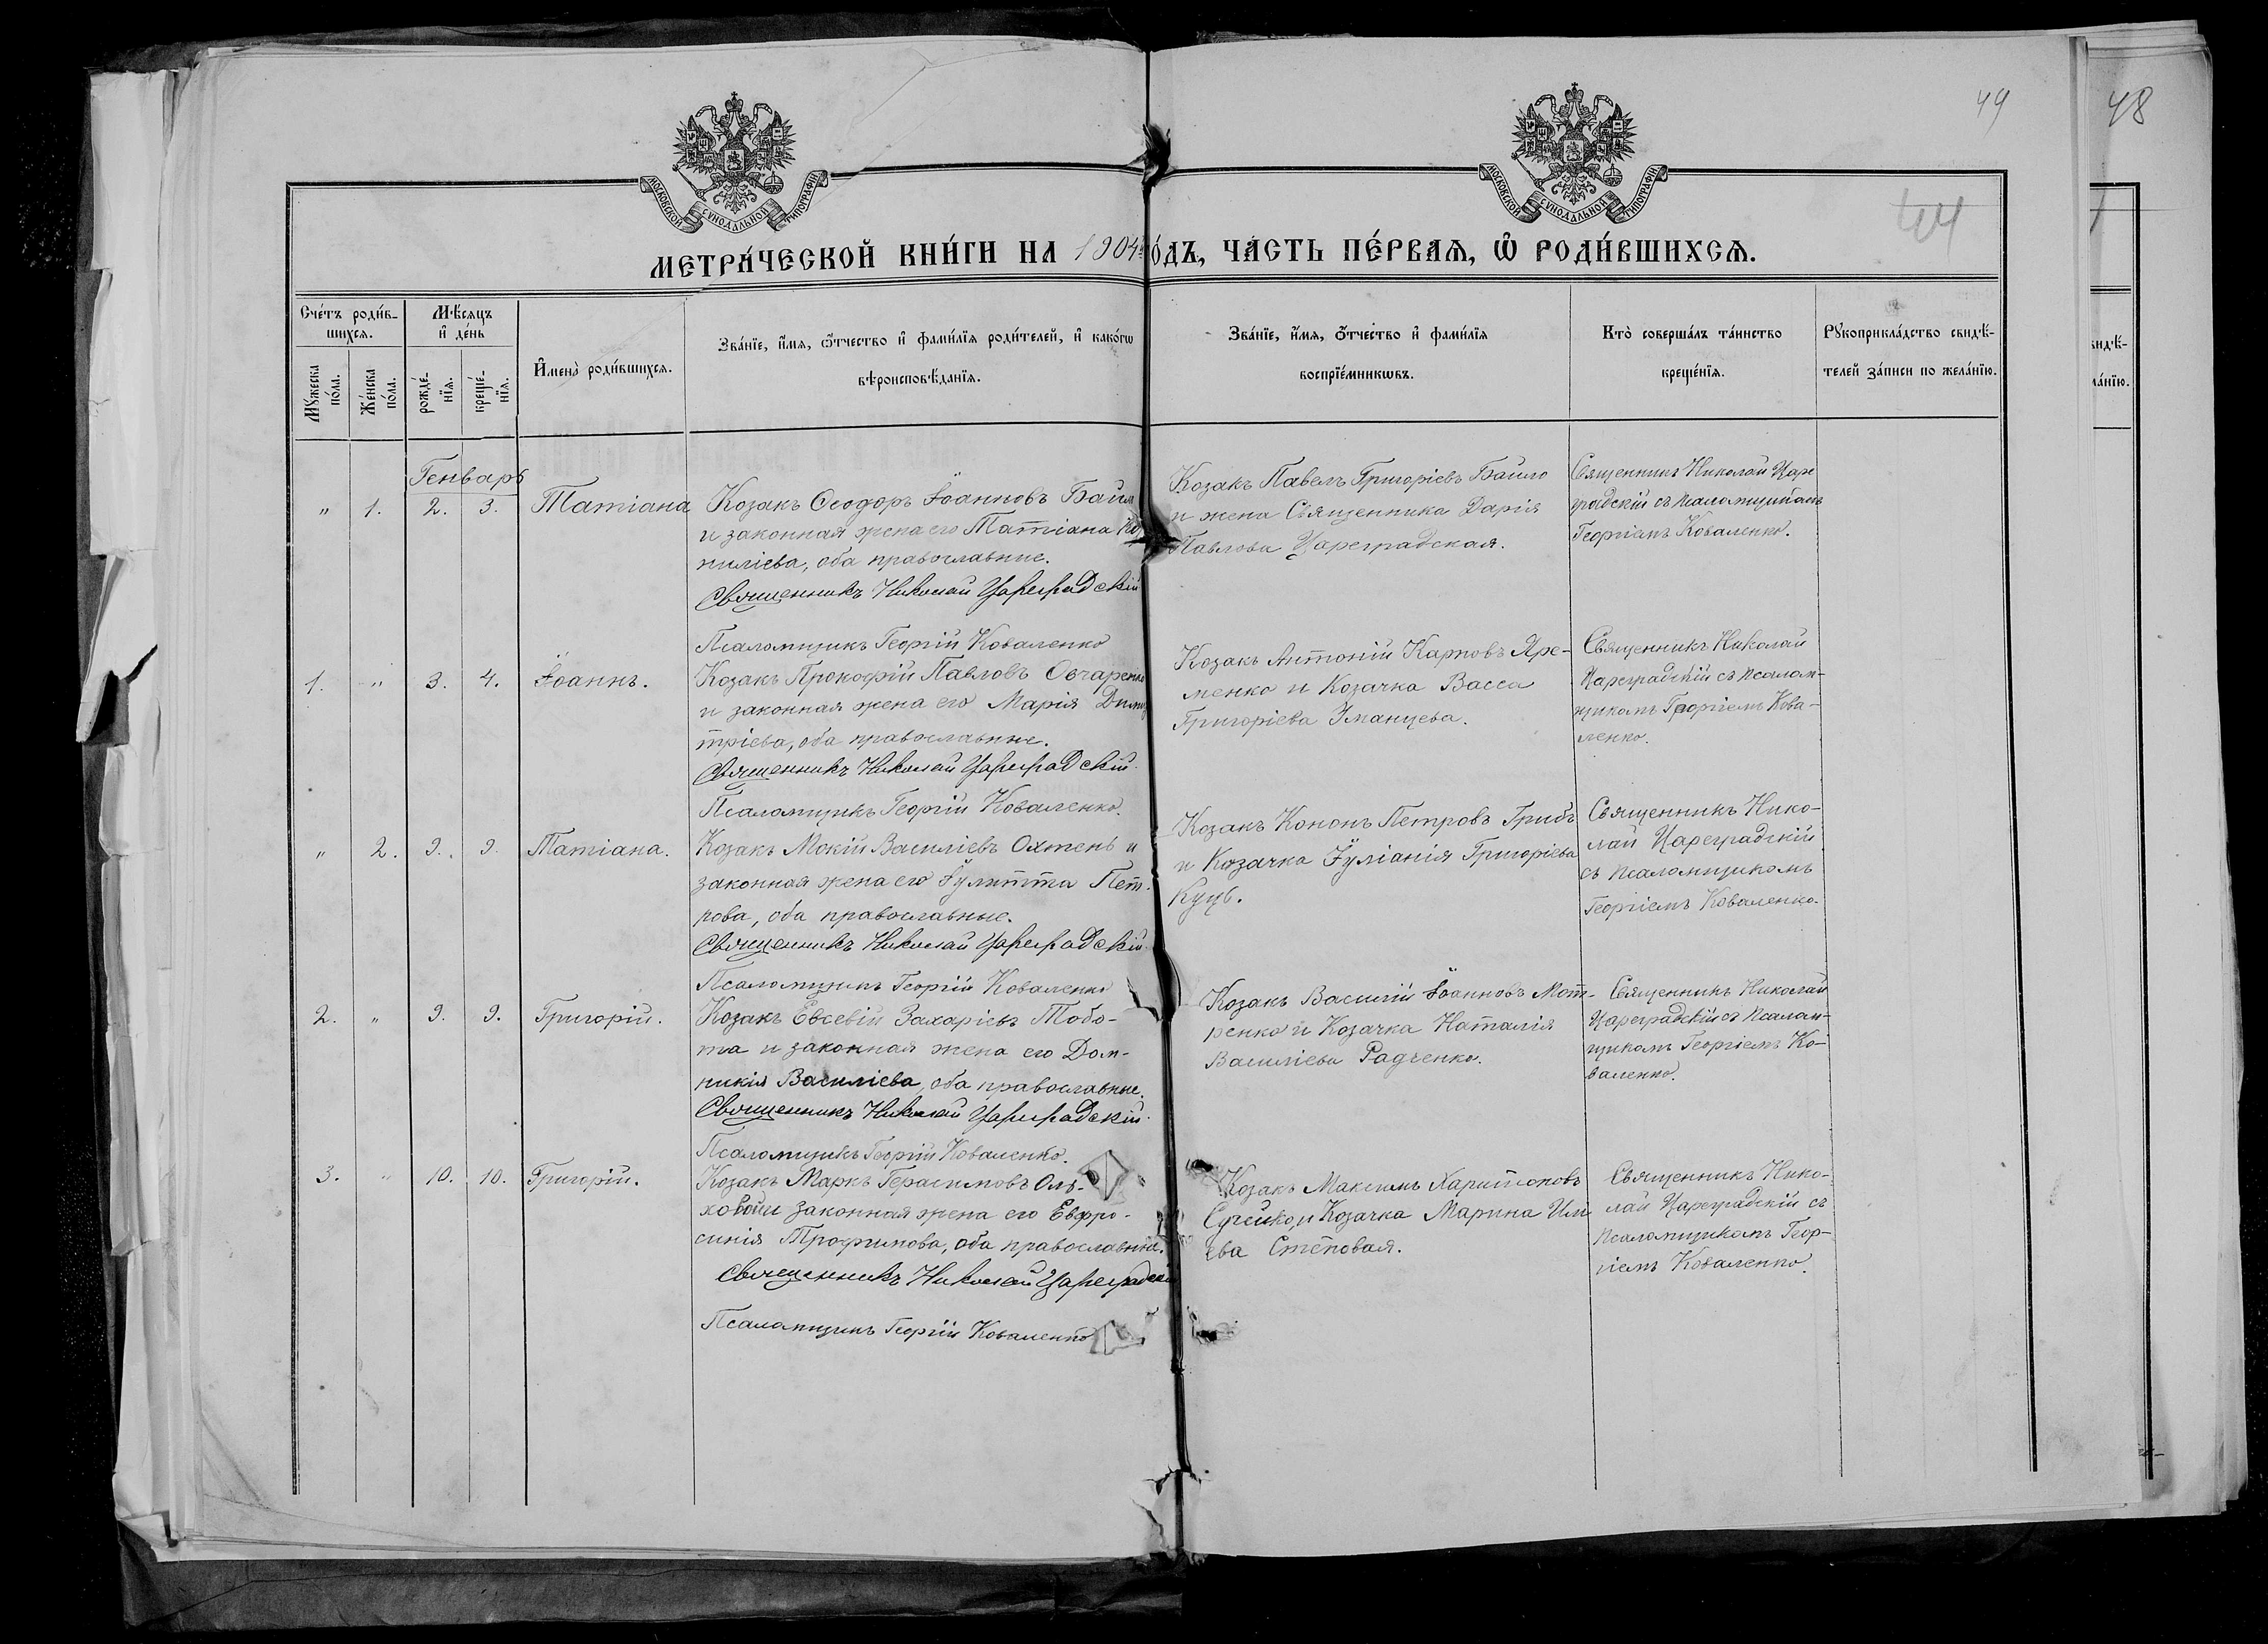 49
48
44
МОСКОВСКОЙ СѴНОДАЛЬНОЙ ТИПОГРАФІИ
МОСКОВСКОЙ СѴНОДАЛЬНОЙ ТИПОГРАФІИ
МЕТРИ́ЧЕСКОЙ КНИ́ГИ НА 1904 ГО́ДЪ, ЧА́СТЬ ПЕ́РВАѦ, Ѽ РОДИ́ВШИХСѦ.
Сче́тъ роди́в-
шихсѧ.
Мꙋ́жеска по́ла.
Же́нска по́ла.
Мѣ́сѧцъ
и҆ де́нь
рожде́-
нїѧ.
креще́-
нїѧ.
И҆мена̀ роди́вшихсѧ.
Зва́нїе, и҆́мѧ, ѻ҆́тчество и҆ фами́лїѧ роди́телей, и҆ како́гѡ
вѣроисповѣ́данїѧ.
Зва́нїе, и҆́мѧ, ѻ҆́тчество и҆ фами́лїѧ
воспрїе́мникѡвъ.
Кто̀ соверша́лъ та́инство
креще́нїѧ.
Рꙋкоприкла́дство свидѣ́-
телей за́писи по жела́нїю.
Генварь
„ 1. 2. 3. Татіана
Козакъ Ѳеодоръ Іоанновъ Байл
и законная жена его Татіана Ко
ниліева, оба православные.
Священникъ Николай Цареградскій
Псаломщикъ Георгій Коваленко
Козакъ Павелъ Григоріевъ Байло
и жена Священника Дарія
Павлова Цареградская.
Священникъ Николай Царе
градскій съ псаломщикомъ
Георгіемъ Коваленко.
1. „ 3. 4. Іоаннъ.
Козакъ Прокофій Павловъ Овчаренко
и законная жена его Марія Дими
тріева, оба православные.
Священникъ Николай Цареградскій.
Псаломщикъ Георгій Коваленко.
Козакъ Антоній Карповъ Яре-
менко и Козачка Васса
Григоріева Уманцева.
Священникъ Николай
Цареградскій съ псалом-
щикомъ Георгіемъ Кова-
ленко.
„ 2. 9. 9. Татіана.
Козакъ Мокій Василіевъ Охтень и
законная жена его Іулитта Пет-
рова, оба православные.
Священникъ Николай Цареградскій.
Псаломщикъ Георгій Коваленко
Козакъ Кононъ Петровъ Грибъ
и Козачка Іуліанія Григоріева
Куцъ.
Священникъ Нико-
лай Цареградскій
съ псаломщикомъ
Георгіемъ Коваленко.
2. „ 9. 9. Григорій.
Козакъ Евсевій Захаріевъ Тобо-
та и законная жена его Дом-
никія Василіева, оба православные.
Священникъ Николай Цареградскій.
Псаломщикъ Георгій Коваленко.
Козакъ Василій Іоанновъ Мот-
ренко и Козачка Наталія
Василіева Радченко.
Священникъ Николай
Цареградскій съ псалом-
щикомъ Георгіемъ Ко-
валенко.
3. „ 10. 10. Григорій.
Козакъ Маркъ Герасимовъ Оль-
ховой и законная жена его Евфро-
синія Трофимова, оба православные.
Священникъ Николай Цареградскій
Псаломщикъ Георгій Коваленко
Козакъ Максимъ Харитоновъ
и Козачка Марина Илі
ева Степовая.
Священникъ Нико-
лай Цареградскій съ
псаломщикомъ Геор-
гіемъ Коваленко.